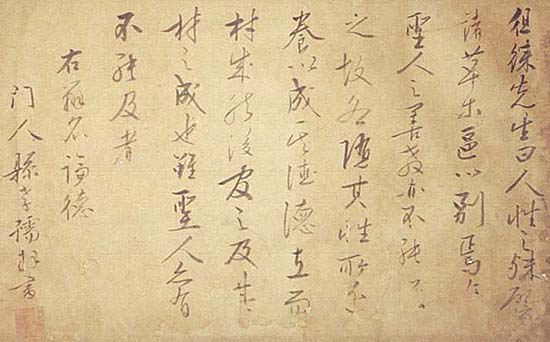 徂徠先生曰人性之殊譬
諸草木區以別焉雖
聖人之善教亦不能強
之故各隨其性所近
養以成其德德立而
材成然後官之及其
材之成也雖聖人亦有
不能及者
右辨名論德
門人縣孝孺拜書